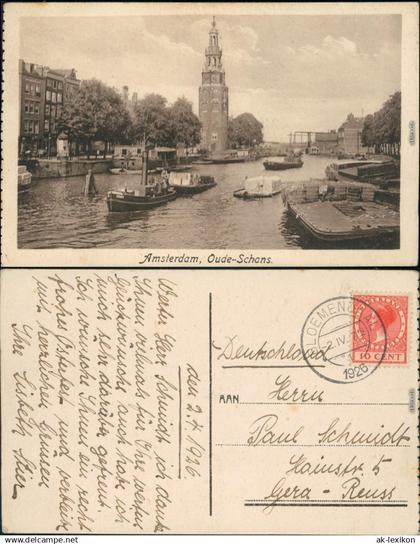 Amsterdam, Oude-Schans.
den 2.4.1926
Werter Herr Schmidt ich danke
Ihnen vielmals für Ihre werten
Glückwünsche, auch habe ich
mich sehr darüber gefreut.
Ich wünsche Ihnen ein recht
frohes Osterfest und verbleibe
mit herzlichen Grüßen
Ihre Lisbeth
BLOEMENDAAL
2.IV
1926
10 CENT
Deutschland
AAN
Herrn
Paul Schmidt
Hainstr 5
Gera-Reuss
ak-lexikon
© ak-lexikon.com